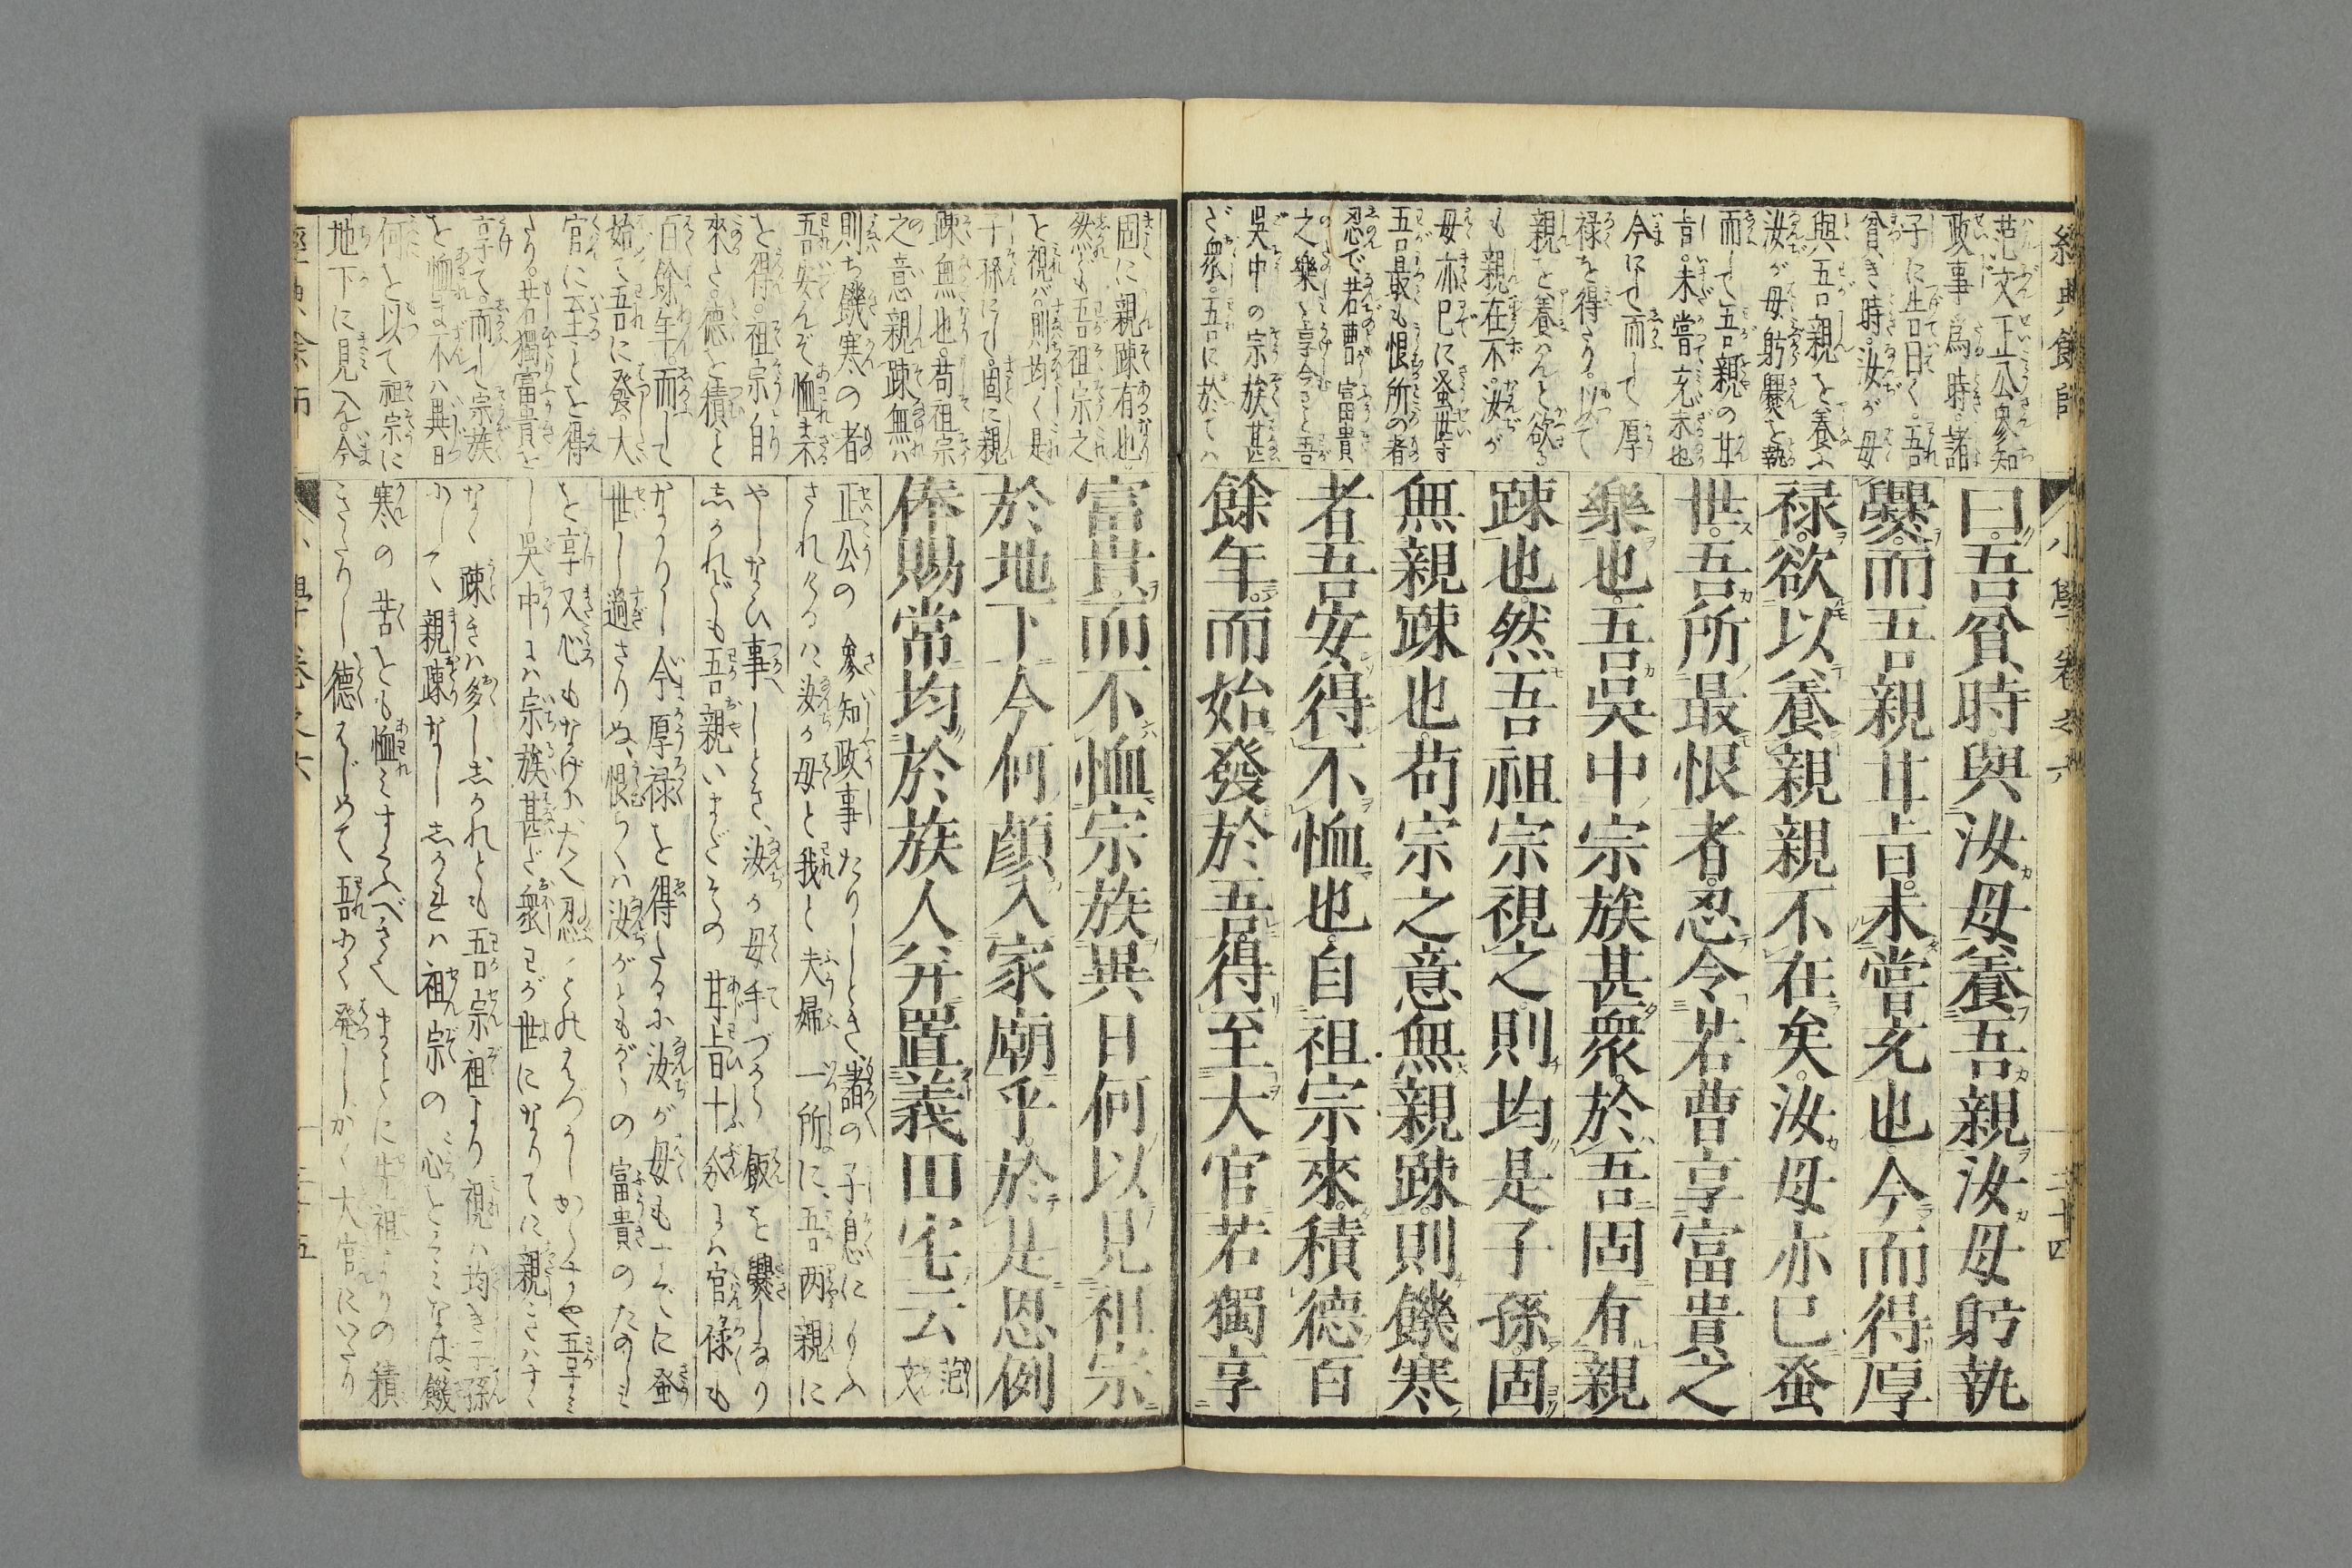 經典餘師
小學卷之六
三十四
范文正公參知
政事爲時諸
子に告曰く。吾
貧き時。汝が母
與吾親を養ふ
汝が母躬爨を執
而して吾親の甘
旨。未嘗充未也
今にして而して厚
禄を得たり。以て
親を養はんと欲る
も親在不。汝が
母亦已に蚤世す
吾最も恨所の者
忍で若曹富貴
之樂を享令
吳中の宗族甚
だ衆。吾に於ては
曰。吾貧時。與汝母養吾親汝母躬執
爨。而吾親甘旨。未嘗充也今而得厚
禄。欲以養親親不在矣。汝母亦已蚤
世。吾所最恨者。忍令若曹享富貴之
樂也。吾吳中宗族甚衆。於吾固有親
踈也。然吾祖宗視之。則均是子孫。固
無親踈也。苟宗之意無親踈。則饑寒
者。吾安得不恤也。自祖宗來。積德百
餘年。而始發於吾得至大官若獨享
固に親踈有也
然ども吾祖宗之
を視ば。則均く是
子孫にて。固に親
踈無也。苟祖宗
之意親踈無ば
則ち饑寒の者
吾安んぞ恤未
を得。祖宗自
來た。德を積と
百餘年。而して
始て吾に發。大
官に至ことを得
たり。若獨富貴を
享て。而して宗族
を恤ま不ば異日
何を以て祖宗に
地下に見へん。今
富貴。而不恤宗族異日何以見祖宗
於地下今何顏入家廟乎。於是恩例
俸賜常均於族人并置義田宅云 范文
正公の參知政事たりしとき、諸の子息にいふ
されけるは汝が母と我と夫婦一所に、吾両親に
やしなひ事しとき、汝が母手づから飯を爨しなり
しかれども吾親いまだその甘旨十分には官禄も
なかりし今厚禄を得たるに汝が母もすでに蚤
世し過さりぬ、恨らくは汝がともがらの富貴のたのしみ
吳中には宗族甚だ衆わが世になりてに親きはすく
なく踈きは多ししかれとも吾宗祖より視は均き子孫
にして親踈なししかれは祖宗の心をこころなば、饑
寒の苦をも恤みすくふべきて
きたりし、德はじめて吾に發し、かく大官にいたり
經典餘師
小學卷之六
三十五